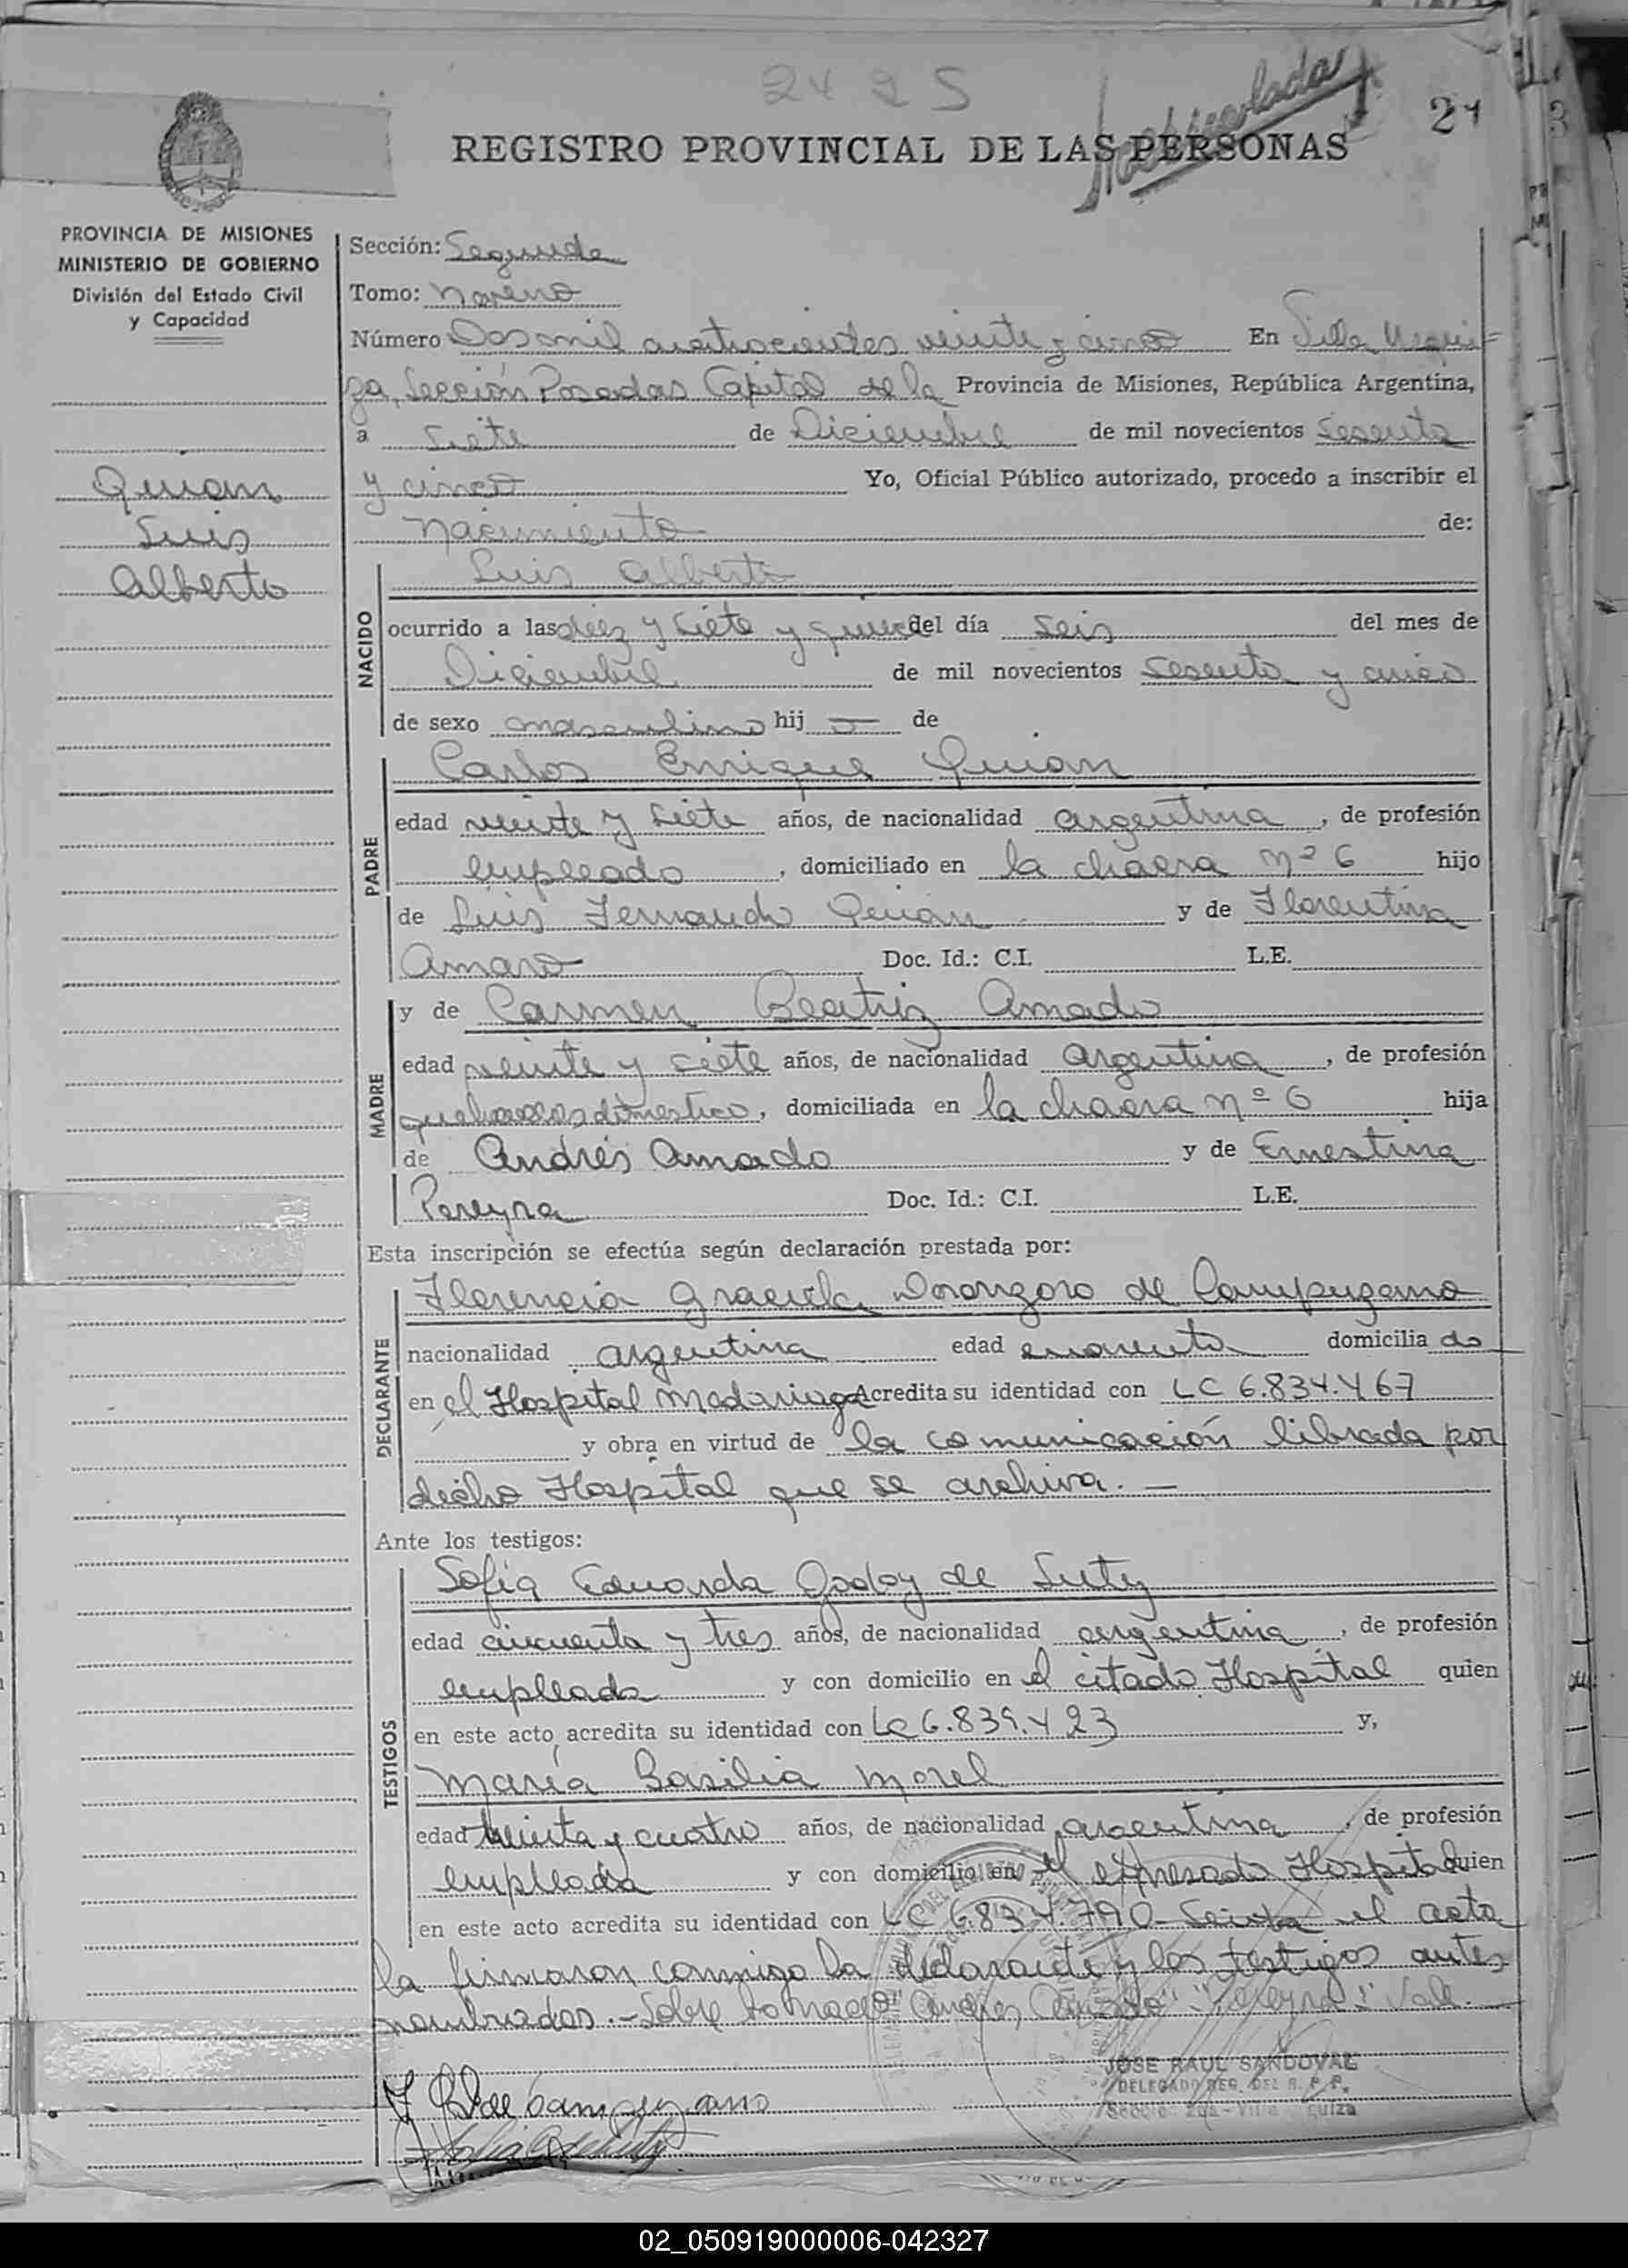 2425
Matriculado
21
REGISTRO PROVINCIAL DE LAS PERSONAS
PROVINCIA DE MISIONES
MINISTERIO DE GOBIERNO
División del Estado Civil
y Capacidad
Quian
Luis
Alberto
Sección: Segunda
Tomo: Noveno
Número Dos mil cuatrocientos veinte y cinco En Villa Urqui-
za, Sección Posadas Capital de la Provincia de Misiones, República Argentina,
a siete de Diciembre de mil novecientos sesenta
y cinco Yo, Oficial Público autorizado, procedo a inscribir el
nacimiento de:
NACIDO
Luis Alberto
ocurrido a las diez y siete y quince del día seis del mes de
Diciembre de mil novecientos sesenta y cinco
de sexo masculino hij o de
PADRE
Carlos Enrique Quian
edad veinte y siete años, de nacionalidad argentina, de profesión
empleado, domiciliado en la chacra nº 6 hijo
de Luis Fernando Quian y de Florentina
Amaro Doc. Id.: C.I. L.E.
MADRE
y de Carmen Beatriz Amado
edad veinte y siete años, de nacionalidad argentina, de profesión
quehaceres doméstico, domiciliada en la chacra nº 6 hija
de Andrés Amado y de Ernestina
Pereyra Doc. Id.: C.I. L.E.
Esta inscripción se efectúa según declaración prestada por:
DECLARANTE
Florencia Graciela de Campuzano
nacionalidad argentina edad cuarenta domicilia da
en el Hospital Madariaga Acredita su identidad con LC 6.834.467
y obra en virtud de la comunicación librada por
dicho Hospital que se archiva. —
Ante los testigos:
TESTIGOS
Sofia Eduarda Godoy de
edad cincuenta y tres años, de nacionalidad argentina, de profesión
empleada y con domicilio en el citado Hospital quien
en este acto acredita su identidad con LC 6.839.423 y,
María Basilia Morel
edad treinta y cuatro años, de nacionalidad argentina, de profesión
empleada y con domicilio en el expresado Hospital quien
en este acto acredita su identidad con LC 6.834.790 - el acta
la firmaron conmigo la declarante y los testigos antes
nombrados. - Sobre borrado "Andrés Amado" "Pereyra" Vale.
JOSE RAUL SANDOVAL
DELEGADO REG. DEL R. P. P.
F de Campuzano
02_050919000006-042327